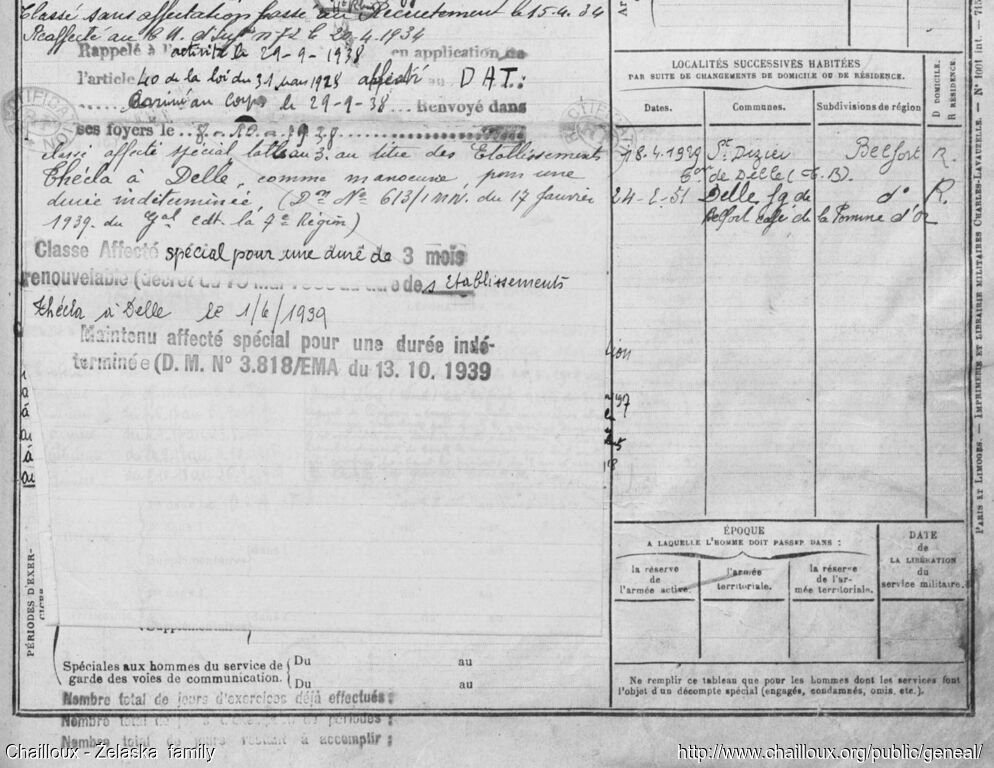 Classé sans affectation passe au Recrutement le 15.4.34
Réaffecté au C.M. d'Inf. n° 72 le 20.4.1934
Rappelé à l'activité le 29-9-1938 en application de
l'article 40 de la loi du 31 mars 1928 affecté au D A T.:
Arrivé au Corps le 29-9-38. Renvoyé dans
ses foyers le 8.10.1938
Classé affecté spécial tableau 3. au titre des Etablissements
Thécla à Delle, comme manoeuvre, pour une
durée indéterminée, (Don No 613/1 du 17 Janvier
1939. du Gal cdt. la 7e Région)
Classe Affecté spécial pour une duré de 3 mois
renouvelable (décret du au titre des Etablissements
Thécla à Delle le 1/6/1939
Maintenu affecté spécial pour une durée indé-
terminée (D. M. N° 3.818/EMA du 13. 10. 1939
PÉRIODES D'EXER-
CICES
Spéciales aux hommes du service de
garde des voies de communication.
Du au
Du au
Nombre total de jours d'exercices déjà effectués :
Nombre total de périodes :
Nombre total de jours restant à accomplir :
LOCALITÉS SUCCESSIVES HABITÉES
PAR SUITE DE CHANGEMENTS DE DOMICILE OU DE RÉSIDENCE.
Dates. Communes. Subdivisions de région
D DOMICILE.
R RÉSIDENCE.
18.4.1929 St Dizier Belfort R.
Con de Delle (T.B.)
24-2-51 Delle fg de d° R.
Belfort Café de la Pomme d'Or
ÉPOQUE
A LAQUELLE L'HOMME DOIT PASSER DANS :
la réserve
de
l'armée active.
l'armée
territoriale.
la réserve
de l'ar-
mée territoriale.
DATE
de
LA LIBÉRATION
du
service militaire.
Ne remplir ce tableau que pour les hommes dont les services font
l'objet d'un décompte spécial (engagés, condamnés, omis, etc.).
PARIS ET LIMOGES. — IMPRIMERIE ET LIBRAIRIE MILITAIRES CHARLES-LAVAUZELLE. — N° 1001 int.
Chailloux - Żelaska family
http://www.chailloux.org/public/geneal/